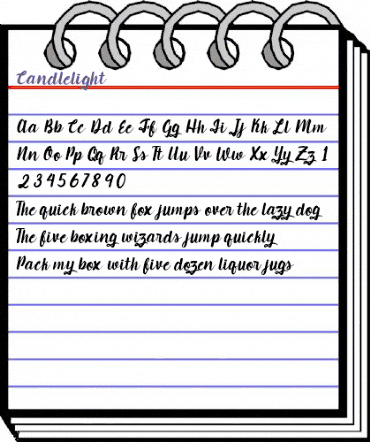 Candlelight
Aa Bb Cc Dd Ee Ff Gg Hh Ii Jj Kk Ll Mm
Nn Oo Pp Qq Rr Ss Tt Uu Vv Ww Xx Yy Zz 1
2 3 4 5 6 7 8 9 0
The quick brown fox jumps over the lazy dog
The five boxing wizards jump quickly
Pack my box with five dozen liquor jugs